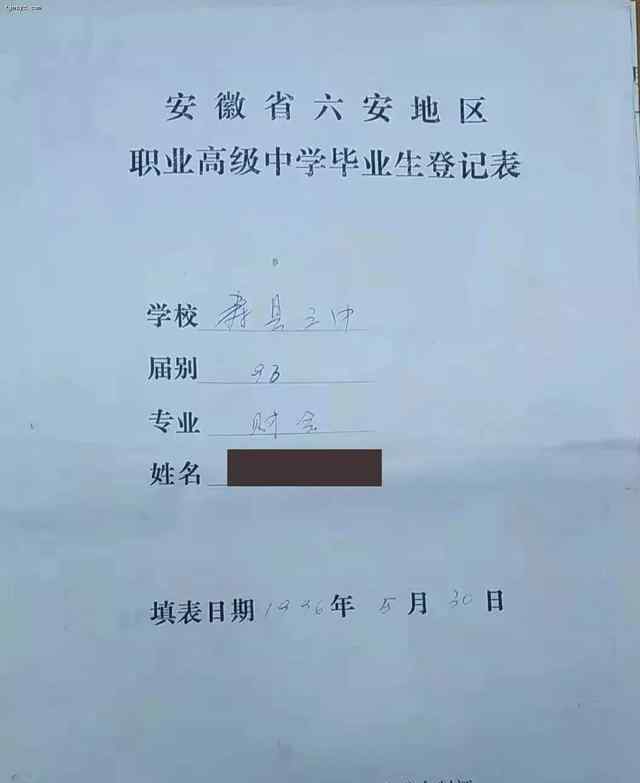 安徽省六安地区
职业高级中学毕业生登记表
学校 寿县三中
届别 93
专业 财会
姓名
填表日期 1996年 5月 30日